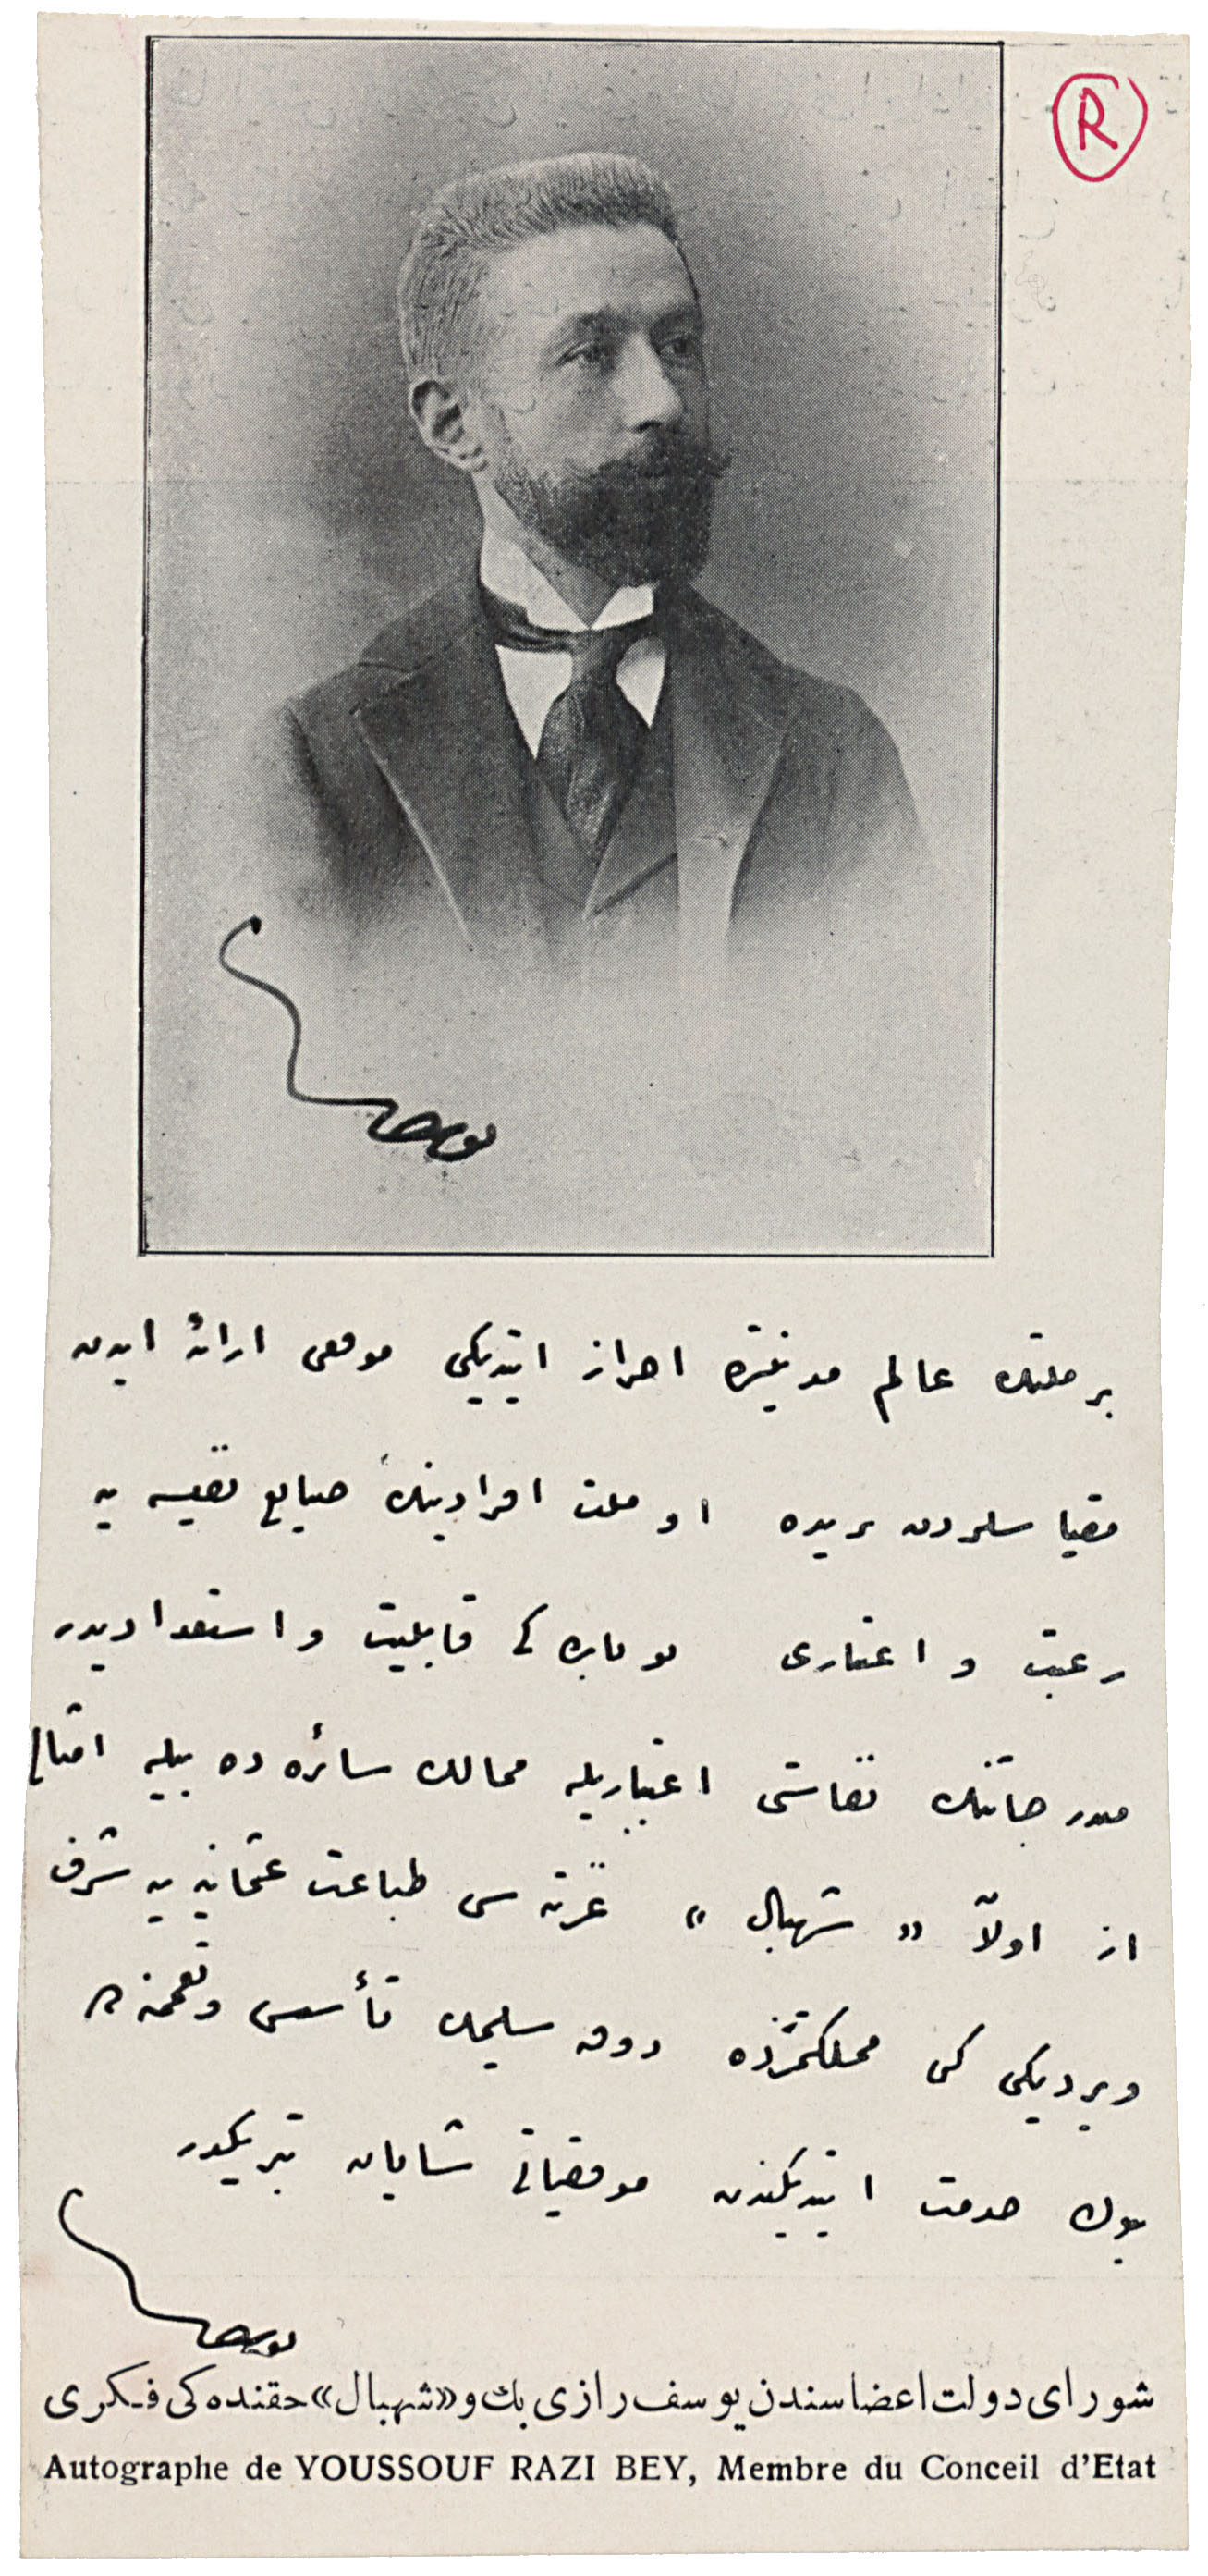 R
بر ملتك عالم مدنیتده احراز ایتدیكی موقعی ارائه ایدن
مقیاسلردن بریده او ملت افرادینك صنایع نفیسه یه
رغبت و اعتباری بو بابده كی قابلیت و استعدادیدر
مندرجاتنك نفاستی اعتباریله ممالك سائره ده بیله
از اولان « شهبال » غزته سی طباعت عثمانیه یه شرف
ویردیكی كبی مملكتمزده ذوق سلیمك تأسس و
بیوك خدمت ایتدیكندن موفقیاتی شایان تبریكدر
شورای دولت اعضاسندن یوسف رازی بك و «شهبال» حقنده كی فكری
Autographe de YOUSSOUF RAZI BEY, Membre du Conceil d'Etat